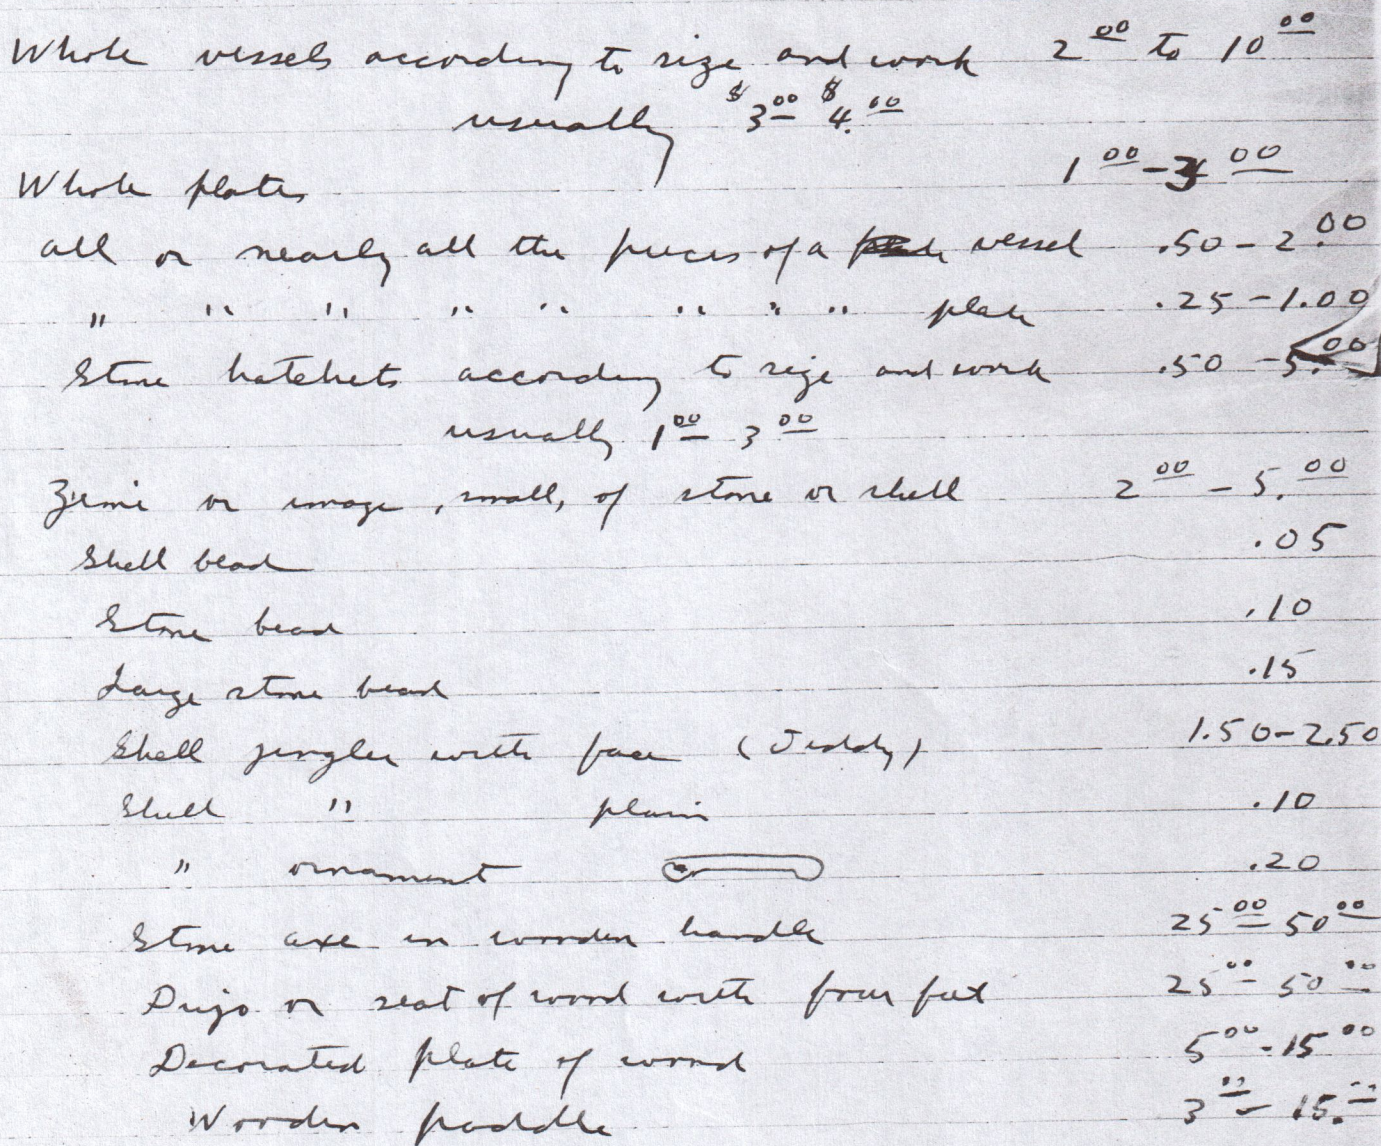 Whole vessels according to size and work 2 00 to 10 00
usually $3 00 $4. 00
Whole plates 1 00 - 3 00
all or nearly all the pieces of a vessel .50 - 2.00
" " " " " " " " plate .25 - 1.00
Stone hatchets according to size and work .50 - 5.00
usually 1 00 3 00
Zemi or image, small, of stone or shell 2 00 - 5. 00
Shell bead .05
Stone bead .10
Large stone bead .15
Shell jingler with face (Jiddy) 1.50 - 2.50
Shell " plain .10
" ornament .20
Stone axe in wooden handle 25 00 50 00
Dujo or seat of wood with four feet 25 00 50 00
Decorated plate of wood 5 00 - 15 00
Wooden paddle 3 " - 15. "